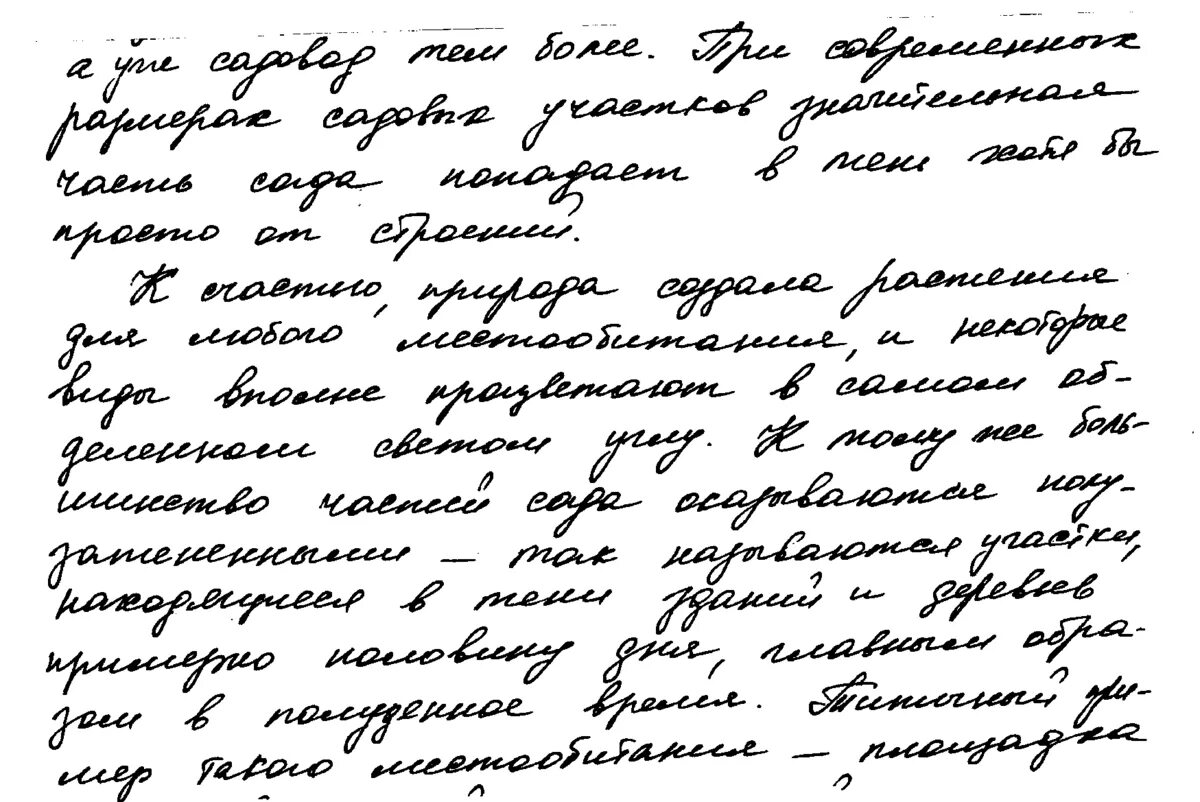 а уж садовод тем более. При современных
размерах садовых участков значительная
часть сада попадает в тень хотя бы
просто от строений.
К счастью, природа создала растения
для любого местообитания, и некоторые
виды вполне процветают в самом об-
деленном светом углу. К тому же боль-
шинство частей сада оказываются полу-
затененными – так называются участки,
находящиеся в тени зданий и деревьев
примерно половину дня, главным обра-
зом в полуденное время. Типичный при-
мер такого местообитания – площадка